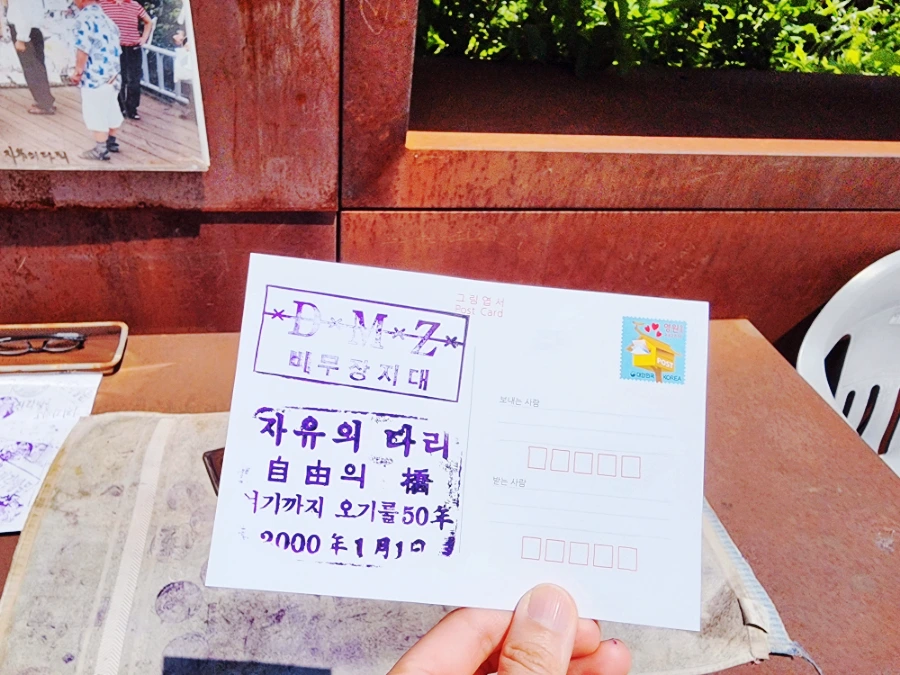 자유의 다리
그림엽서
Post Card
D M Z
비무장지대
자유의 다리
自由의 橋
여기까지 오기를 50年
2000年 1月 1日
POST
대한민국 KOREA
보내는 사람
받는 사람